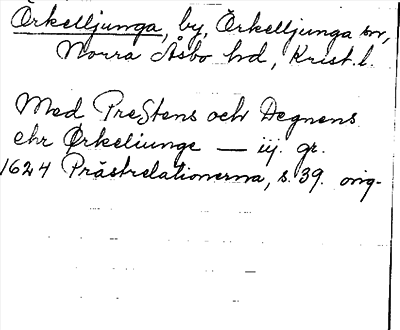 Örkelljunga, by, Örkelljunga sn,
Norra Åsbo hd, Krist. l.
Med Prestens och Degnens
ehr Ørkeliunge — iij. gr.
1624 Prästrelationerna, s. 39. orig.